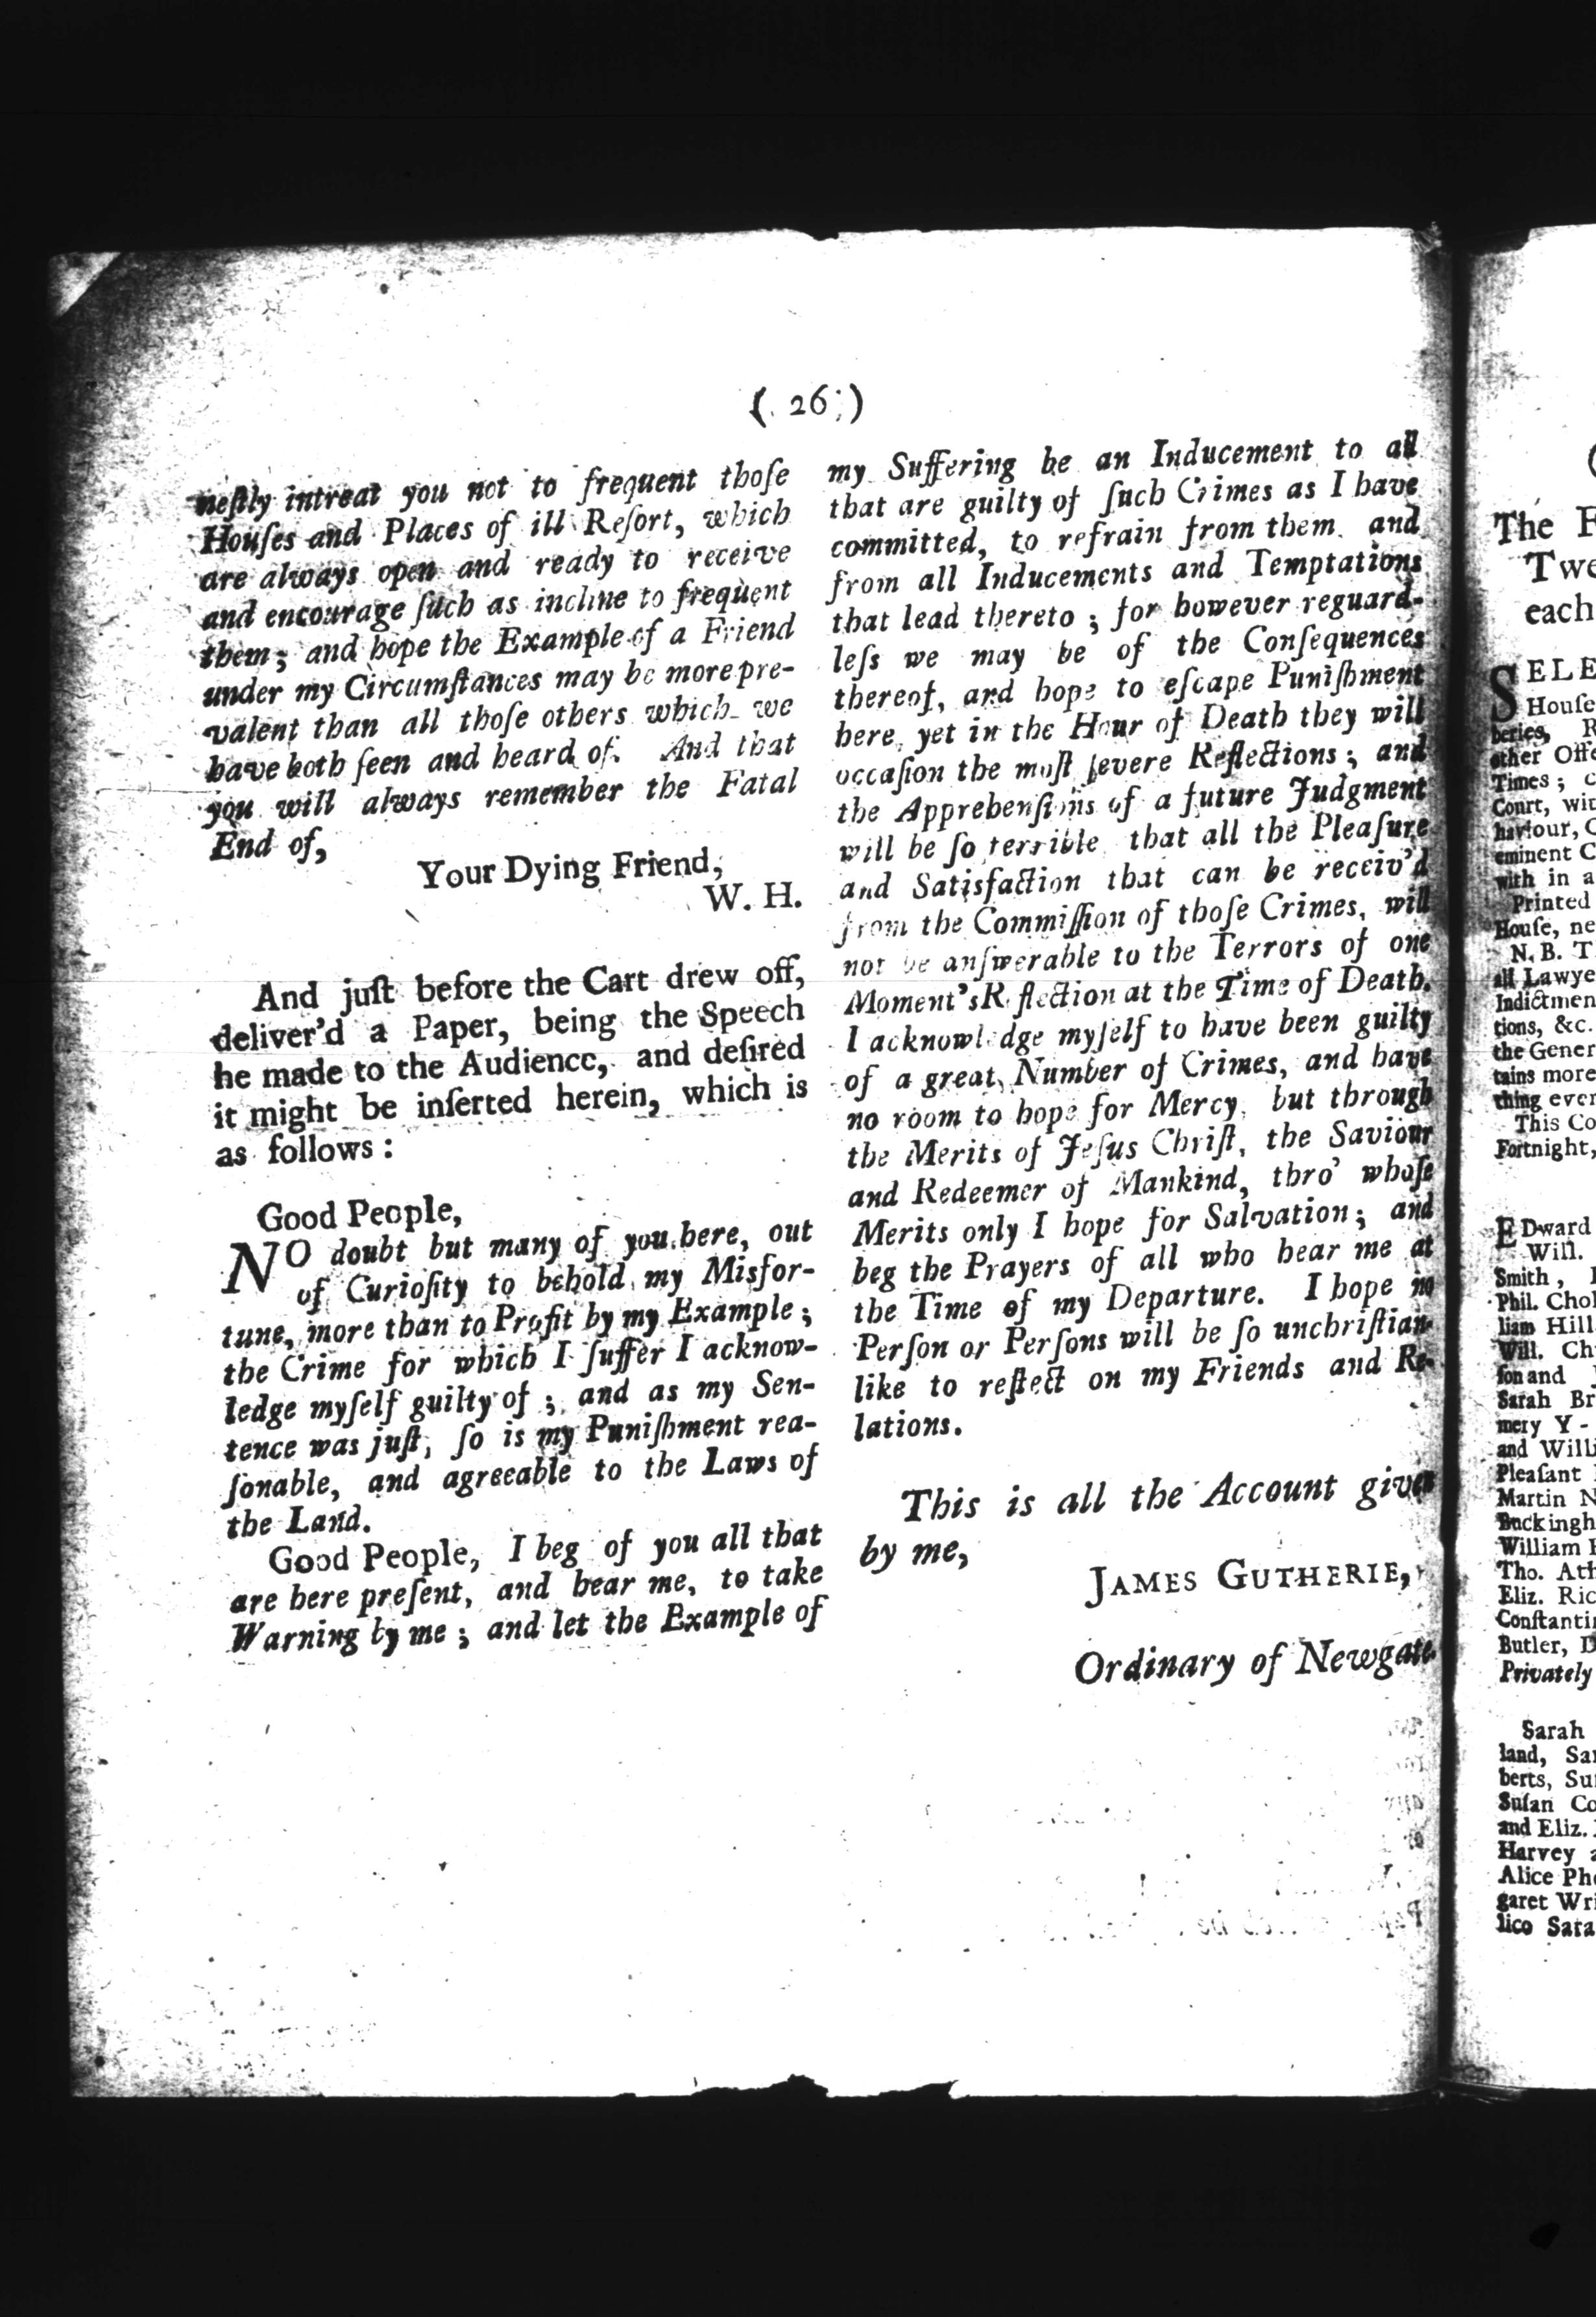 ( 26 )
neſtly intreat you not to frequent thoſe
Houſes and Places of ill Reſort, which
are always open and ready to receive
and encourage ſuch as incline to frequent
them; and hope the Example of a Friend
under my Circumſtances may be more pre-
valent than all thoſe others which we
have both ſeen and heard of. And that
you will always remember the Fatal
End of,
Your Dying Friend,
W. H.
And juſt before the Cart drew off,
deliver'd a Paper, being the Speech
he made to the Audience, and deſired
it might be inſerted herein, which is
as follows:
Good People,
NO doubt but many of you here, out
of Curioſity to behold my Misfor-
tune, more than to Profit by my Example;
the Crime for which I ſuffer I acknow-
ledge myſelf guilty of; and as my Sen-
tence was juſt, ſo is my Puniſhment rea-
ſonable, and agreeable to the Laws of
the Land.
Good People, I beg of you all that
are here preſent, and hear me, to take
Warning by me; and let the Example of
my Suffering be an Inducement to all
that are guilty of ſuch Crimes as I have
committed, to refrain from them and
from all Inducements and Temptations
that lead thereto; for however reguard-
leſs we may be of the Conſequences
thereof, and hope to eſcape Puniſhment
here, yet in the Hour of Death they will
occaſion the moſt ſevere Reflections; and
the Apprehenſions of a future Judgment
will be ſo terrible that all the Pleaſure
and Satisfaction that can be receiv'd
from the Commiſſion of thoſe Crimes, will
not be anſwerable to the Terrors of one
Moment's Reflection at the Time of Death.
I acknowledge myſelf to have been guilty
of a great Number of Crimes, and have
no room to hope for Mercy, but through
the Merits of Jeſus Chriſt, the Saviour
and Redeemer of Mankind, thro' whoſe
Merits only I hope for Salvation; and
beg the Prayers of all who hear me at
the Time of my Departure. I hope no
Perſon or Perſons will be ſo unchriſtian-
like to reflect on my Friends and Re-
lations.
This is all the Account given
by me,
JAMES GUTHERIE,
Ordinary of Newgate.
The
Twe
each
SELE
Houſe
beries, R
other Offe
Times; c
Court, wit
haviour, C
eminent C
with in a
Printed
Houſe, ne
N. B. T
all Lawye
Indictmen
tions, &c.
the Gener
tains more
thing ever
This Co
Fortnight,
EDward
Will.
Smith,
Phil. Chol
liam Hill
Will. Ch
ſon and
Sarah Br
mery Y-
and Willi
Pleaſant
Martin N
Buckingh
William
Tho. Ath
Eliz. Ric
Conſtantin
Butler, D
Privately
Sarah
land, Sar
berts, Su
Suſan Co
and Eliz.
Harvey a
Alice Phe
garet Wri
lico Sara